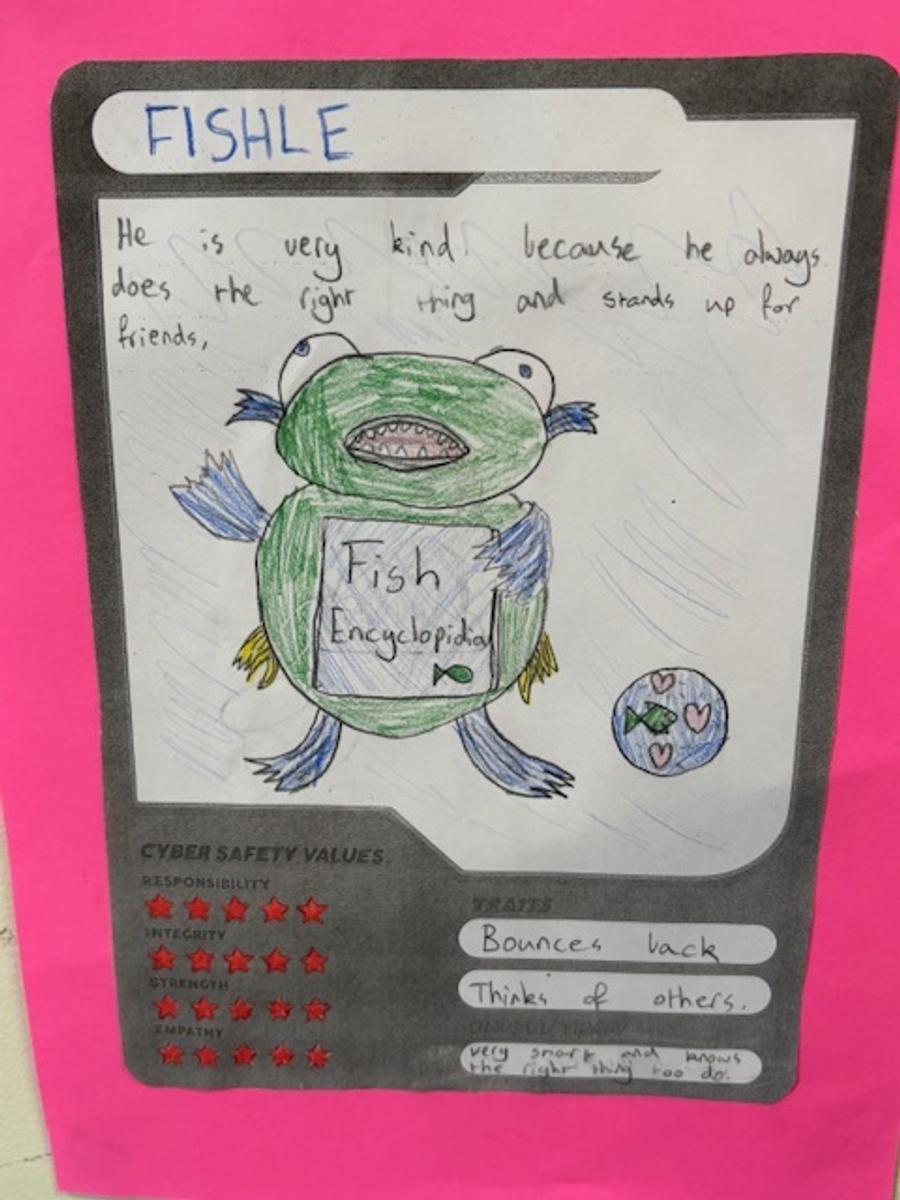 FISHLE
He is very kind because he always
does the right thing and stands up for
friends,
Fish
Encyclopidia
CYBER SAFETY VALUES
RESPONSIBILITY
INTEGRITY
STRENGTH
EMPATHY
TRAITS
Bounces back
Thinks of others.
very smart and knows
the right thing too do.